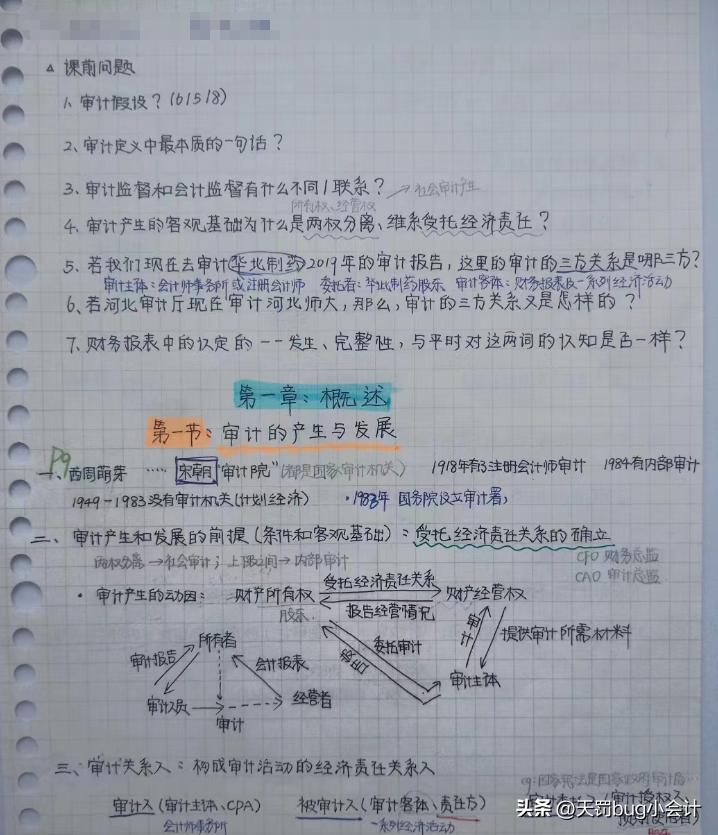 △ 课前问题
1、审计假设？(b1518)
2、审计定义中最本质的一句话？
3、审计监督和会计监督有什么不同/联系？ → 社会审计产生
所有权、经营权
4、审计产生的客观基础为什么是两权分离、维系受托经济责任？
5、若我们现在去审计华北制药2019年的审计报告，这里的审计的三方关系是哪三方？
审计主体：会计师事务所或注册会计师 委托者：华北制药股东 审计客体：财务报表及一系列经济活动
6、若河北审计厅现在审计河北师大，那么，审计的三方关系又是怎样的？
7、财务报表中的认定的——发生、完整性，与平时对这两词的认知是否一样？
第一章：概述
第一节：审计的产生与发展
P9
一、西周萌芽 …… 宋朝"审计院"（都是国家审计机关） 1918年有了注册会计师审计 1984有内部审计
1949-1983没有审计机关(计划经济) ·1983年 国务院设立审计署；
二、审计产生和发展的前提(条件和客观基础)：受托经济责任关系的确立
两权分离→社会审计；上下级之间→内部审计
CFO 财务总监
CAO 审计总监
· 审计产生的动因： 财产所有权 受托经济责任关系 财产经营权
股东 报告经营情况
所有者 委托审计 审计 提供审计所需材料
审计报告 会计报表 审计主体
审计人员 经营者
审计
三、审计关系人：构成审计活动的经济责任关系人
审计人(审计主体、CPA) 被审计人(审计客体、责任方)
会计师事务所 一系列经济活动
头条 @天罚bug小会计